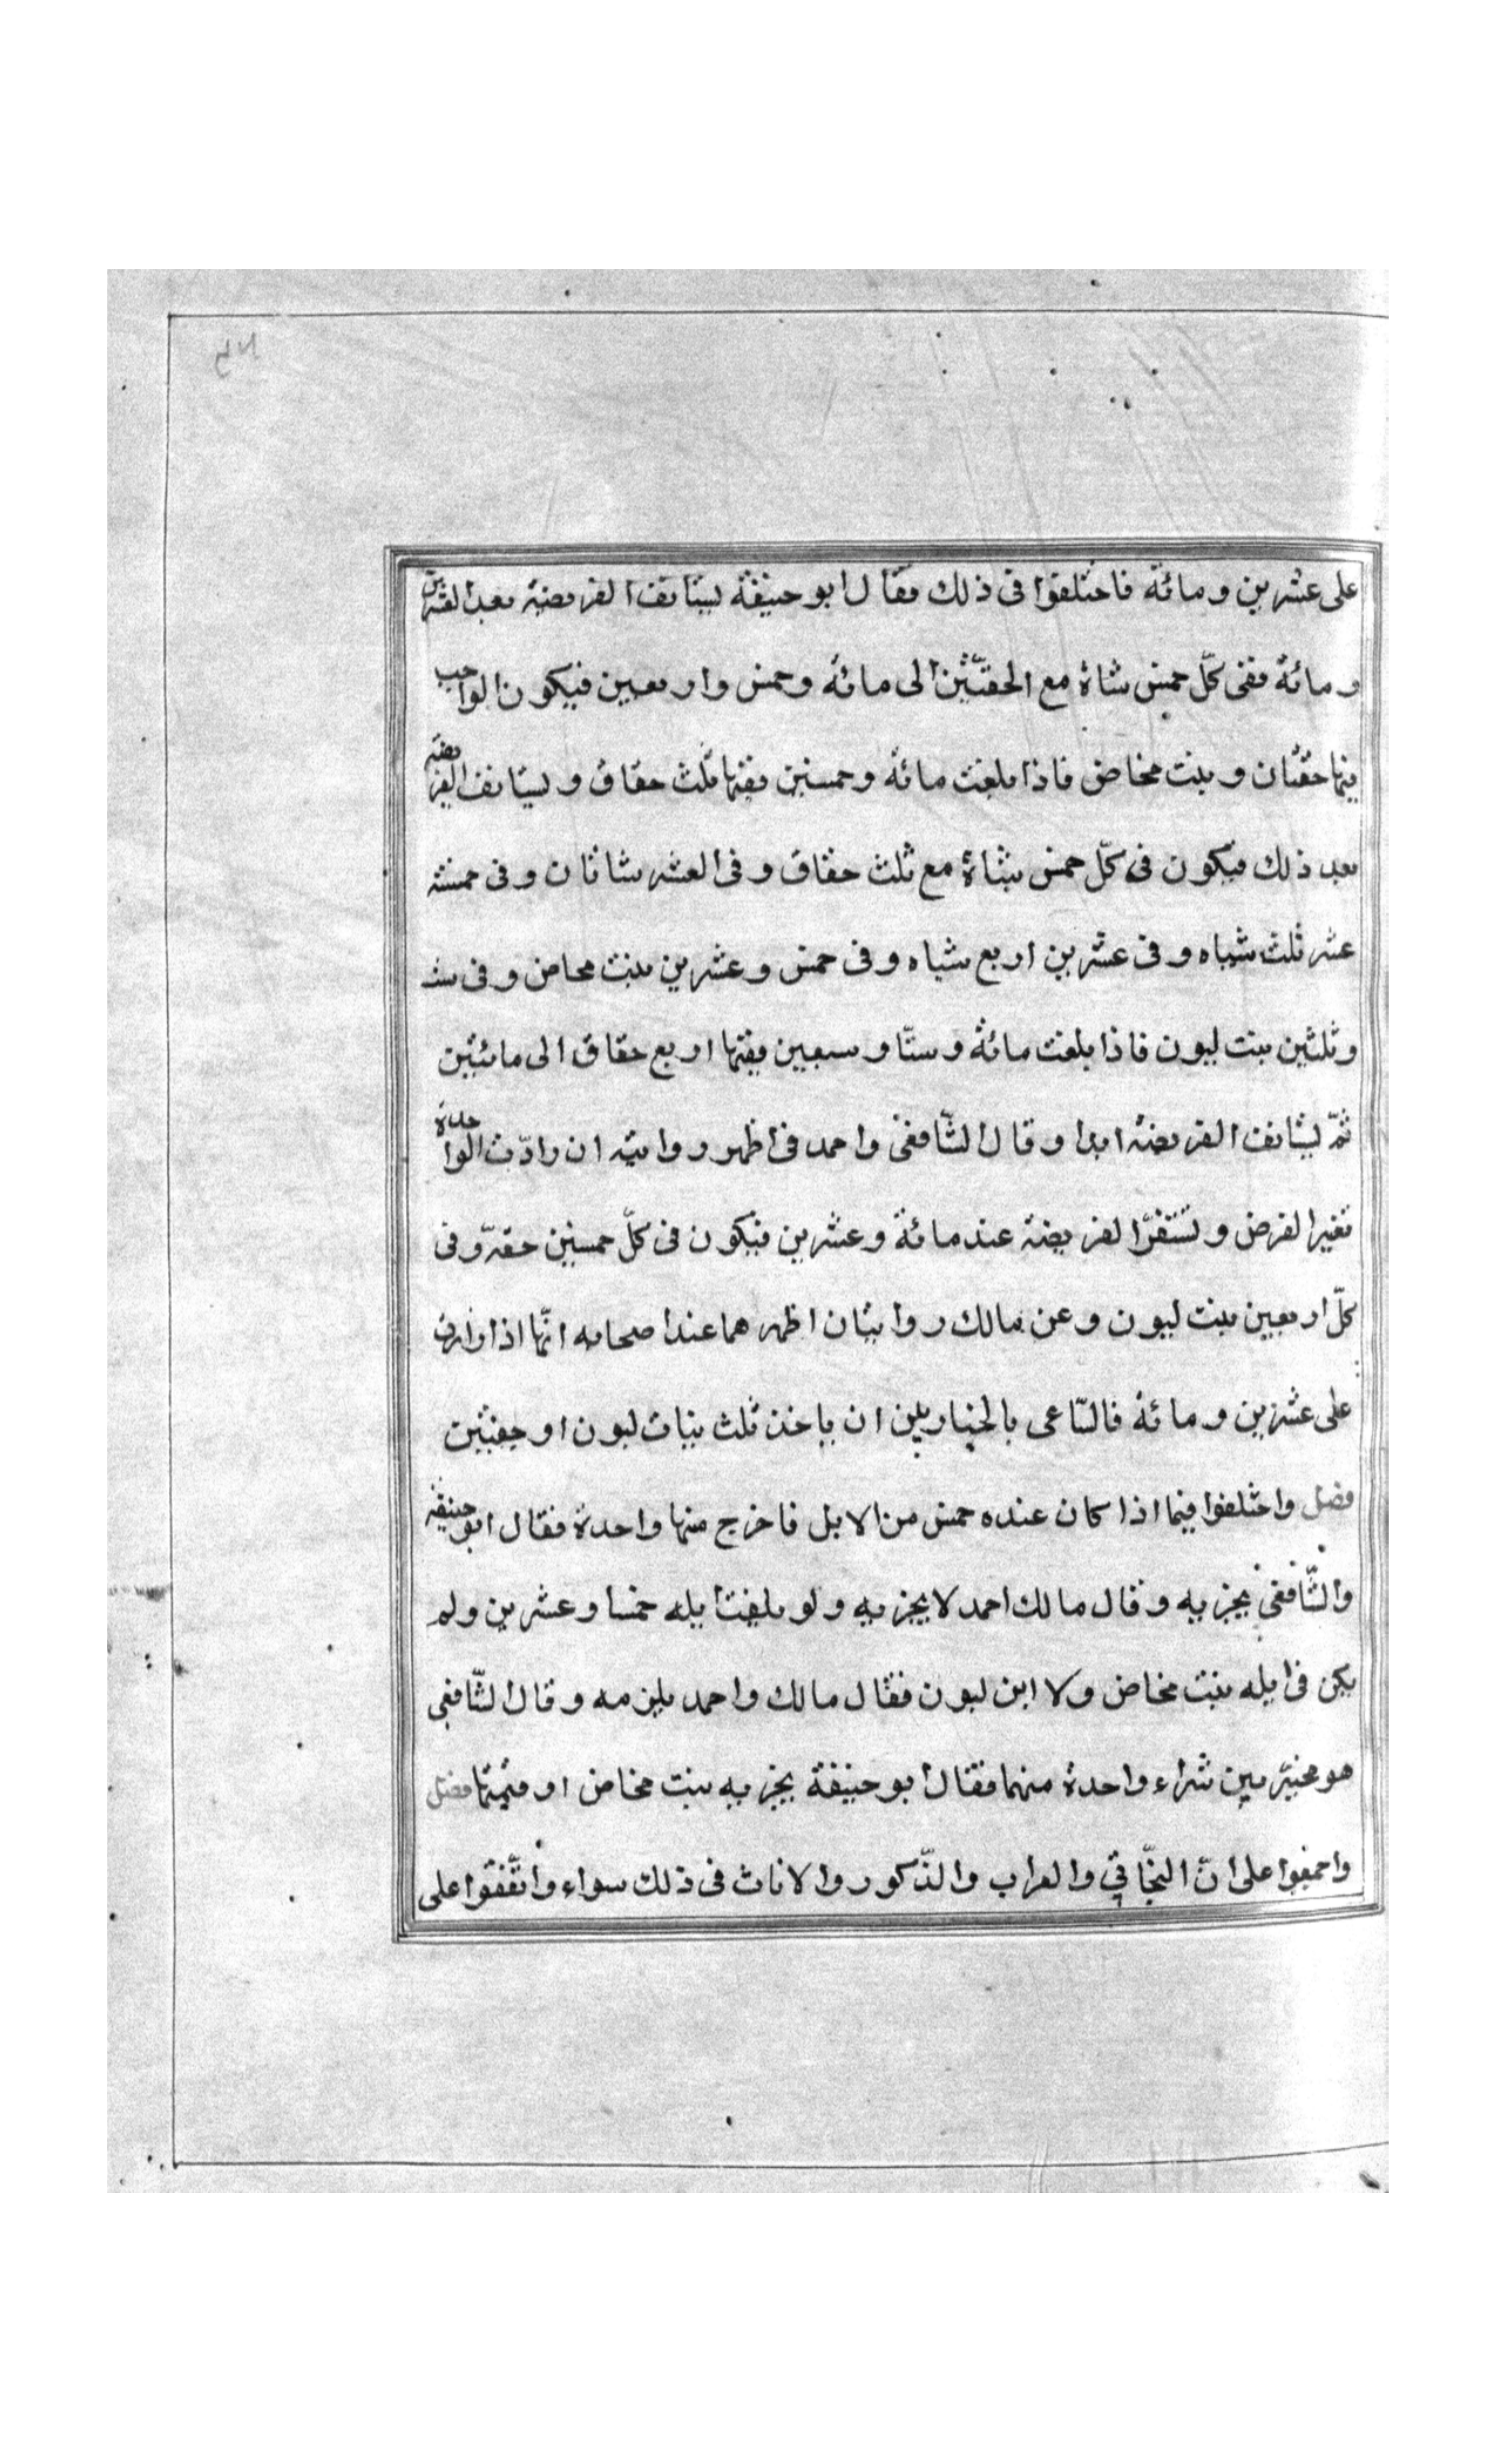 على عشرين ومائة فاختلفوا فى ذلك فقال ابو حنيفة يستانف الفريضة بعد العشرين
ومائة ففى كلّ خمس شاة مع الحقتين الى مائة وخمس واربعين فيكون الواجب
فيها حقتان وبنت مخاض فاذا بلغت مائة وخمسين ففيها ثلث حقاق ويستانف الفريضة
بعد ذلك فيكون فى كلّ خمس شاة مع ثلث حقاق وفى العشر شاتان وفى خمسة
عشر ثلث شياه وفى عشرين اربع شياه وفى خمس وعشرين بنت مخاض وفى ست
وثلثين بنت لبون فاذا بلغت مائة وستّا وسبعين ففيها اربع حقاق الى مائتين
ثمّ يستانف الفريضة ابدا وقال الشّافعى واحمد فى اظهر روايتيه ان زادت الواحدة
تغير الفرض وتستقرّ الفريضة عند مائة وعشرين فيكون فى كلّ خمسين حقة وفى
كلّ اربعين بنت لبون وعن مالك روايتان اظهرهما عند اصحابه انّها اذا زادت
على عشرين ومائة فالسّاعى بالخيار بين ان ياخذ ثلث بنات لبون او حقتين
فصل واختلفوا فيما اذا كان عنده خمس من الابل فاخرج منها واحدة فقال ابو حنيفة
والشّافعى يجزيه وقال مالك احمد لا يجزيه ولو بلغت ابله خمسا وعشرين ولم
يكن فى ابله بنت مخاض ولا ابن لبون فقال مالك واحمد يلزمه وقال الشّافعى
هو مخيّر بين شراء واحدة منهما فقال ابو حنيفة يجزيه بنت مخاض او قيمتها فصل
واجمعوا على انّ البخّاتي والعراب والذّكور والاناث فى ذلك سواء واتّفقوا على